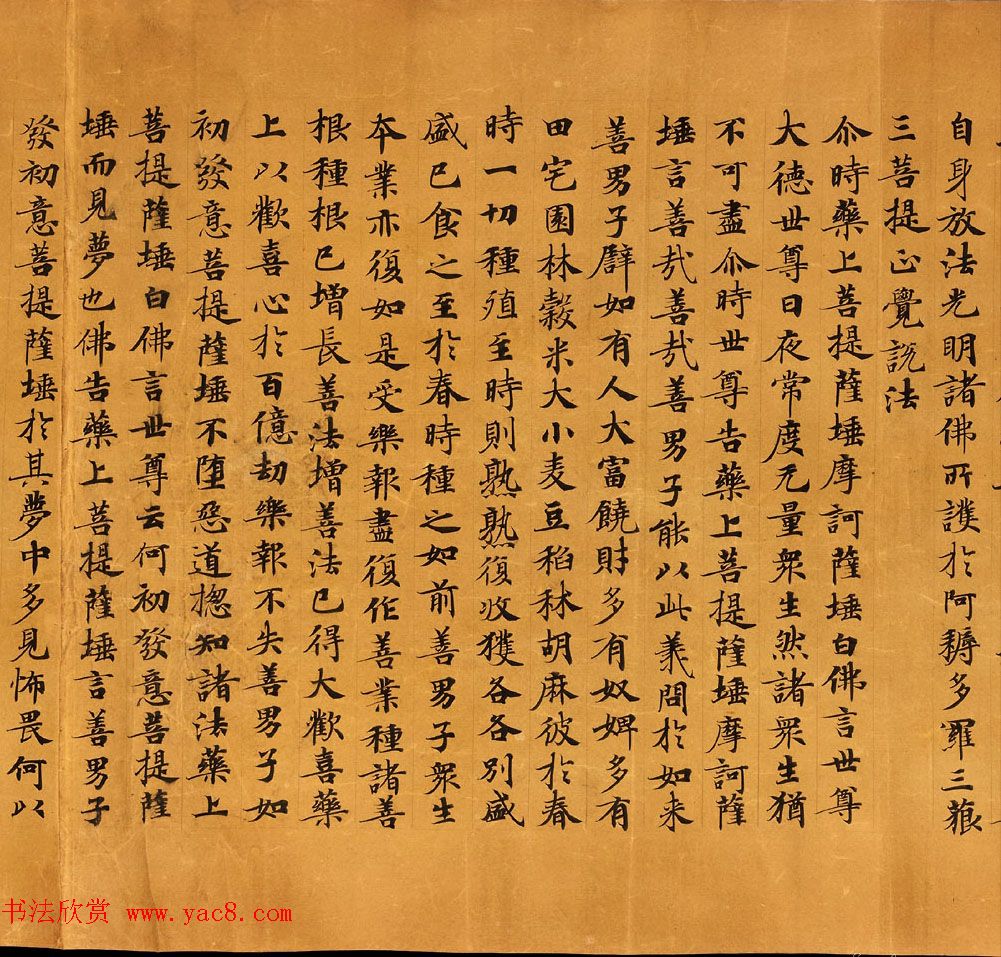 自身放法光明諸佛所護於阿耨多羅三藐
三菩提正覺說法
尒時藥上菩提薩埵摩訶薩埵白佛言世尊
大德世尊日夜常度无量衆生然諸衆生猶
不可盡尒時世尊告藥上菩提薩埵摩訶薩
埵言善哉善哉善男子能以此義問於如来
善男子辟如有人大富饒財多有奴婢多有
田宅園林穀米大小麦豆稻秫胡麻彼於春
時一切種殖至時則熟熟復收獲各各別盛
盛已食之至於春時種之如前善男子衆生
夲業亦復如是受樂報盡復作善業種諸善
根種根已增長善法增善法已得大歡喜藥
上以歡喜心於百億劫樂報不失善男子如
初發意菩提薩埵不墮惡道揔知諸法藥上
菩提薩埵白佛言世尊云何初發意菩提薩
埵而見夢也佛告藥上菩提薩埵言善男子
發初意菩提薩埵於其夢中多見怖畏何以
书法欣赏 www.yac8.com